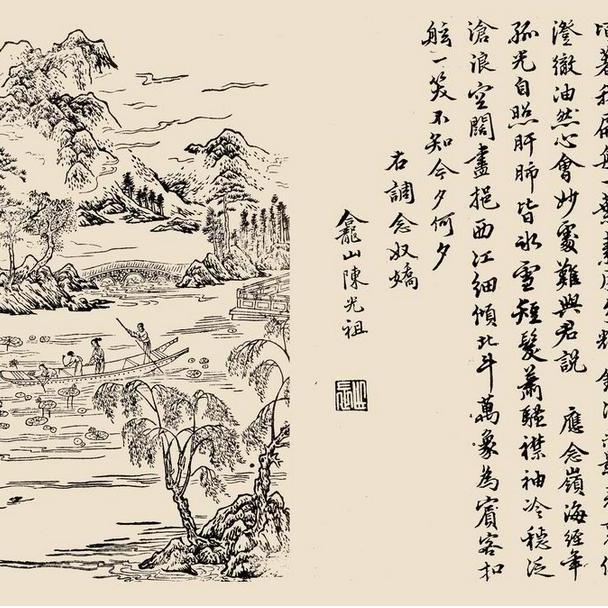 澄徹油然心會妙處難與君説 應念嶺海經年
孤光自照肝肺皆冰雪短髮蕭騷襟袖冷穩泛
滄浪空闊盡挹西江細傾北斗萬象為賓客扣
舷一笑不知今夕何夕
右調念奴嬌
龕山陳光祖